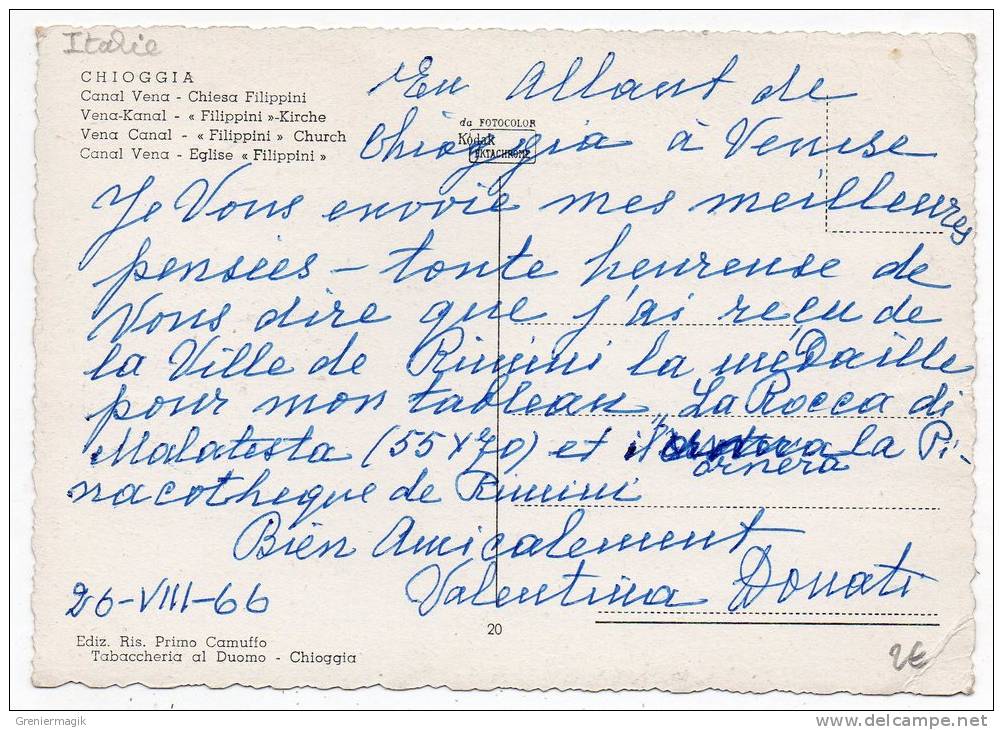 Italie
CHIOGGIA
Canal Vena - Chiesa Filippini
Vena-Kanal - « Filippini »-Kirche
Vena Canal - « Filippini » Church
Canal Vena - Eglise « Filippini »
da FOTOCOLOR
Kodak
EKTACHROME
En Allant de
Chioggia à Venise
Je Vous envoie mes meilleures
pensées - toute heureuse de
Vous dire que j'ai reçu de
la Ville de Rimini la médaille
pour mon tableau "La Rocca di
Malatesta (55 x 70) et il ornera la Pi-
nacotheque de Rimini
Bien Amicalement
Valentina Donati
26-VIII-66
20
Ediz. Ris. Primo Camuffo
Tabaccheria al Duomo - Chioggia
2€
Greniermagik
www.delcampe.net